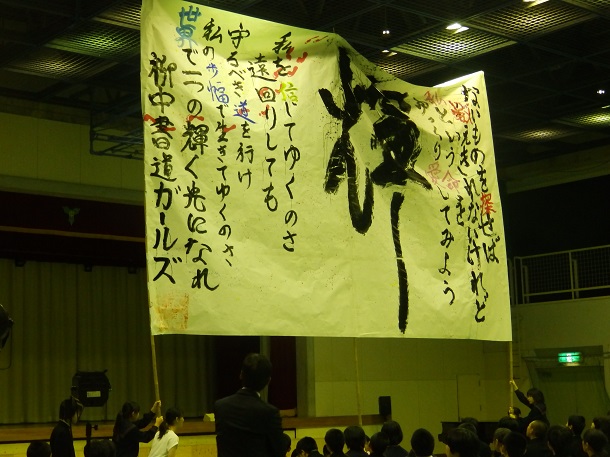 ないものを探せば
かぞえきれないけれど
私という命を
ゆっくり愛してみよう
輝
私を信じてゆくのさ
遠回りしても
守るべき道を行け
私の歩幅で生きてゆくのさ
世界で一つの輝く光になれ
中書道ガールズ